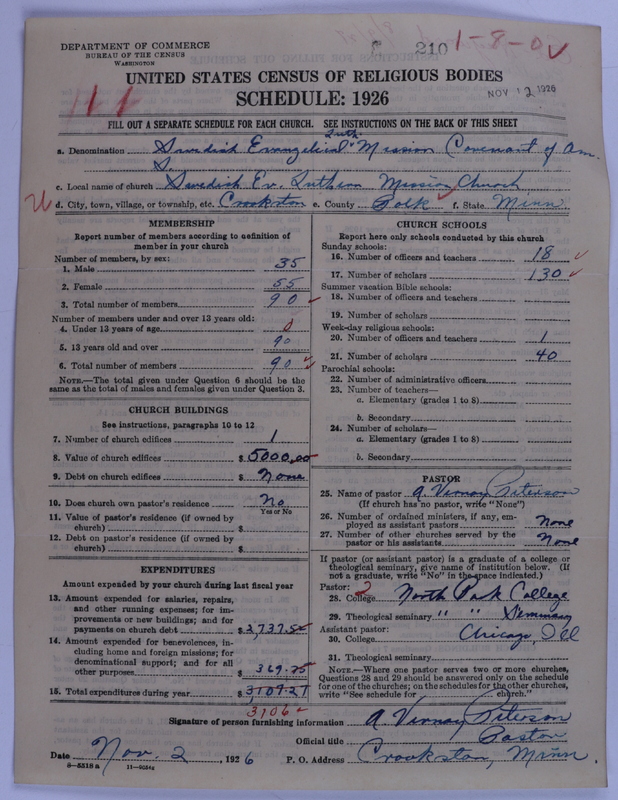 DEPARTMENT OF COMMERCE
BUREAU OF THE CENSUS
WASHINGTON
210
1-8-0
UNITED STATES CENSUS OF RELIGIOUS BODIES
SCHEDULE: 1926
NOV 12 1926
111
FILL OUT A SEPARATE SCHEDULE FOR EACH CHURCH. SEE INSTRUCTIONS ON THE BACK OF THIS SHEET
Luth
a. Denomination Swedish Evangelical Mission Covenant of Am.
c. Local name of church Swedish Ev. Luthern Mission Church
d. City, town, village, or township, etc. Crookston e. County Polk f. State Minn.
MEMBERSHIP
Report number of members according to definition of
member in your church
Number of members, by sex:
1. Male 35
2. Female 55
3. Total number of members 90
Number of members under and over 13 years old:
4. Under 13 years of age 0
5. 13 years old and over 90
6. Total number of members 90
NOTE.—The total given under Question 6 should be the
same as the total of males and females given under Question 3.
CHURCH BUILDINGS
See instructions, paragraphs 10 to 12
7. Number of church edifices 1
8. Value of church edifices $ 5000.00
9. Debt on church edifices $ None
10. Does church own pastor's residence No
Yes or No
11. Value of pastor's residence (if owned by
church) $
12. Debt on pastor's residence (if owned by
church) $
EXPENDITURES
Amount expended by your church during last fiscal year
13. Amount expended for salaries, repairs,
and other running expenses; for im-
provements or new buildings; and for
payments on church debt $ 2,737.52
14. Amount expended for benevolences, in-
cluding home and foreign missions; for
denominational support; and for all
other purposes $ 369.75
15. Total expenditures during year $ 3107.27
3106
CHURCH SCHOOLS
Report here only schools conducted by this church
Sunday schools:
16. Number of officers and teachers 18
17. Number of scholars 130
Summer vacation Bible schools:
18. Number of officers and teachers
19. Number of scholars
Week-day religious schools:
20. Number of officers and teachers 1
21. Number of scholars 40
Parochial schools:
22. Number of administrative officers
23. Number of teachers—
a. Elementary (grades 1 to 8)
b. Secondary
24. Number of scholars—
a. Elementary (grades 1 to 8)
b. Secondary
PASTOR
25. Name of pastor A. Vernay Peterson
(If church has no pastor, write "None")
26. Number of ordained ministers, if any, em-
ployed as assistant pastors None
27. Number of other churches served by the
pastor or his assistants None
If pastor (or assistant pastor) is a graduate of a college or
theological seminary, give name of institution below. (If
not a graduate, write "No" in the space indicated.)
Pastor: 2
28. College North Park College
29. Theological seminary " " Seminary
Assistant pastor: Chicago, Ill
30. College
31. Theological seminary
NOTE.—Where one pastor serves two or more churches,
Questions 28 and 29 should be answered only on the schedule
for one of the churches; on the schedules for the other churches,
write "See schedule for church."
Signature of person furnishing information A. Vernay Peterson
Official title Pastor
Date Nov. 2, 1926 P. O. Address Crookston, Minn.
8—5518a 11—9024g